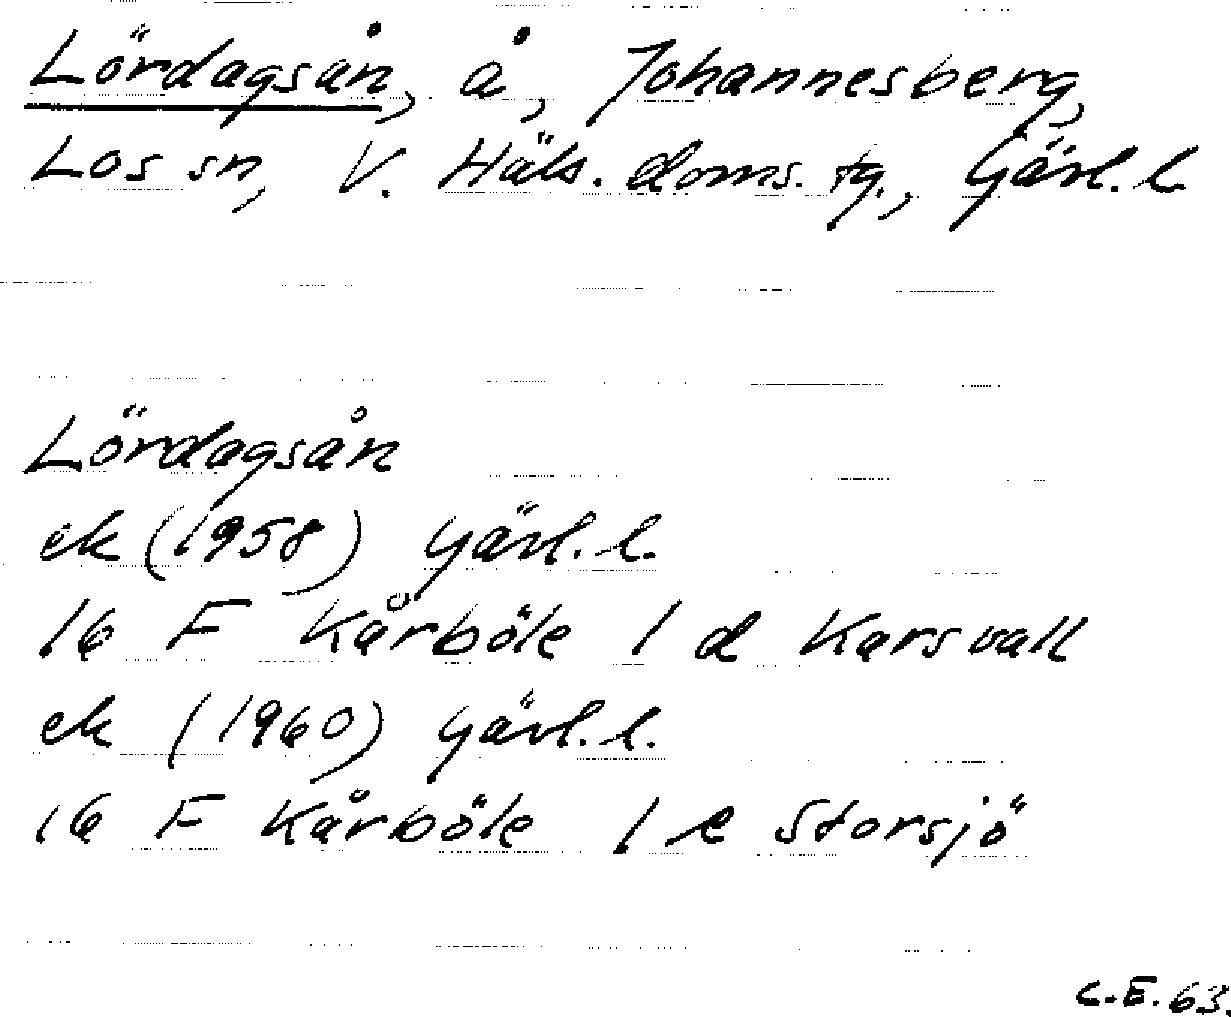 Lördagsån, å, Johannesberg,
Los sn, V. Häls. doms. tg., Gävl. l.
Lördagsån
ek (1958) Gävl. l.
16 F Kårböle 1 d Karsvall
ek (1960) Gävl. l.
16 F Kårböle 1 e Storsjö
C.E. 63.